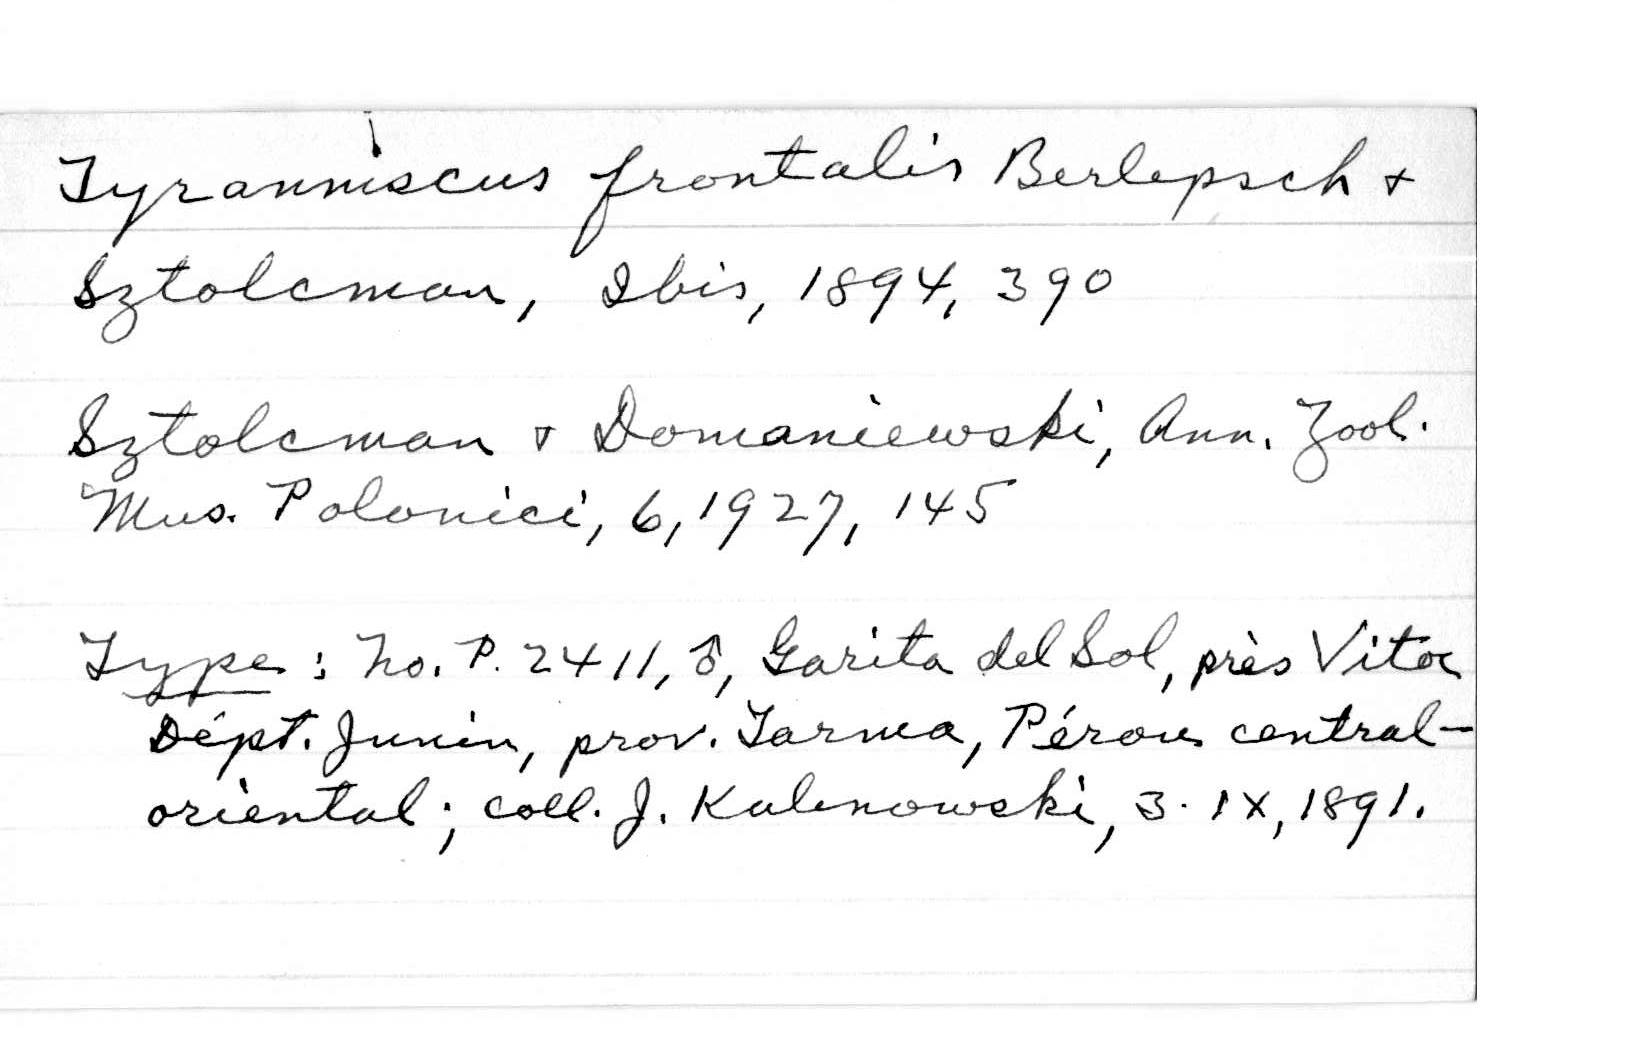 Tyranniscus frontalis Berlepsch &
Sztolcman, Ibis, 1894, 390
Sztolcman & Domaniewski, Ann. Zool.
Mus. Polonici, 6, 1927, 145
Type: No. P. 2411, ♂, Garita del Sol, près Vitoc
Dépt. Junin, prov. Tarma, Pérou central-
oriental; coll. J. Kalinowski, 3. IX, 1891.